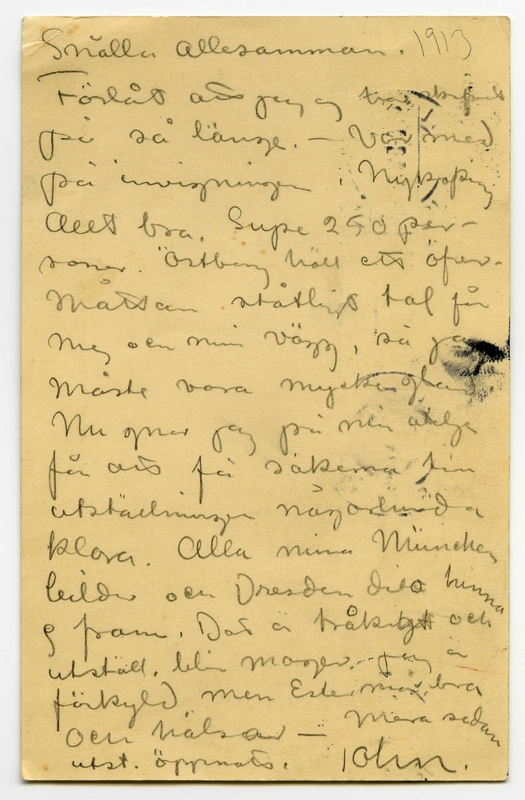 Snälla allesamman. 1913
Förlåt att jag ej
på så länge. — Var med
på invigningen i Nyköping
Allt bra. Supé 250 per-
soner. Östberg höll ett öfver-
måttan ståtligt tal för
mej och min vägg, så jag
måste vara mycket glad
Nu gnor jag på min
för att få sakerna till
utställningen någorlunda
klara. Alla mina München
bilder och Dresden dito hinna
ej fram. Det är tråkigt och
utställ. blir mager. Jag är
förkyld men Ester mår bra
och hälsar — Mera sedan
utst. öppnats. John.